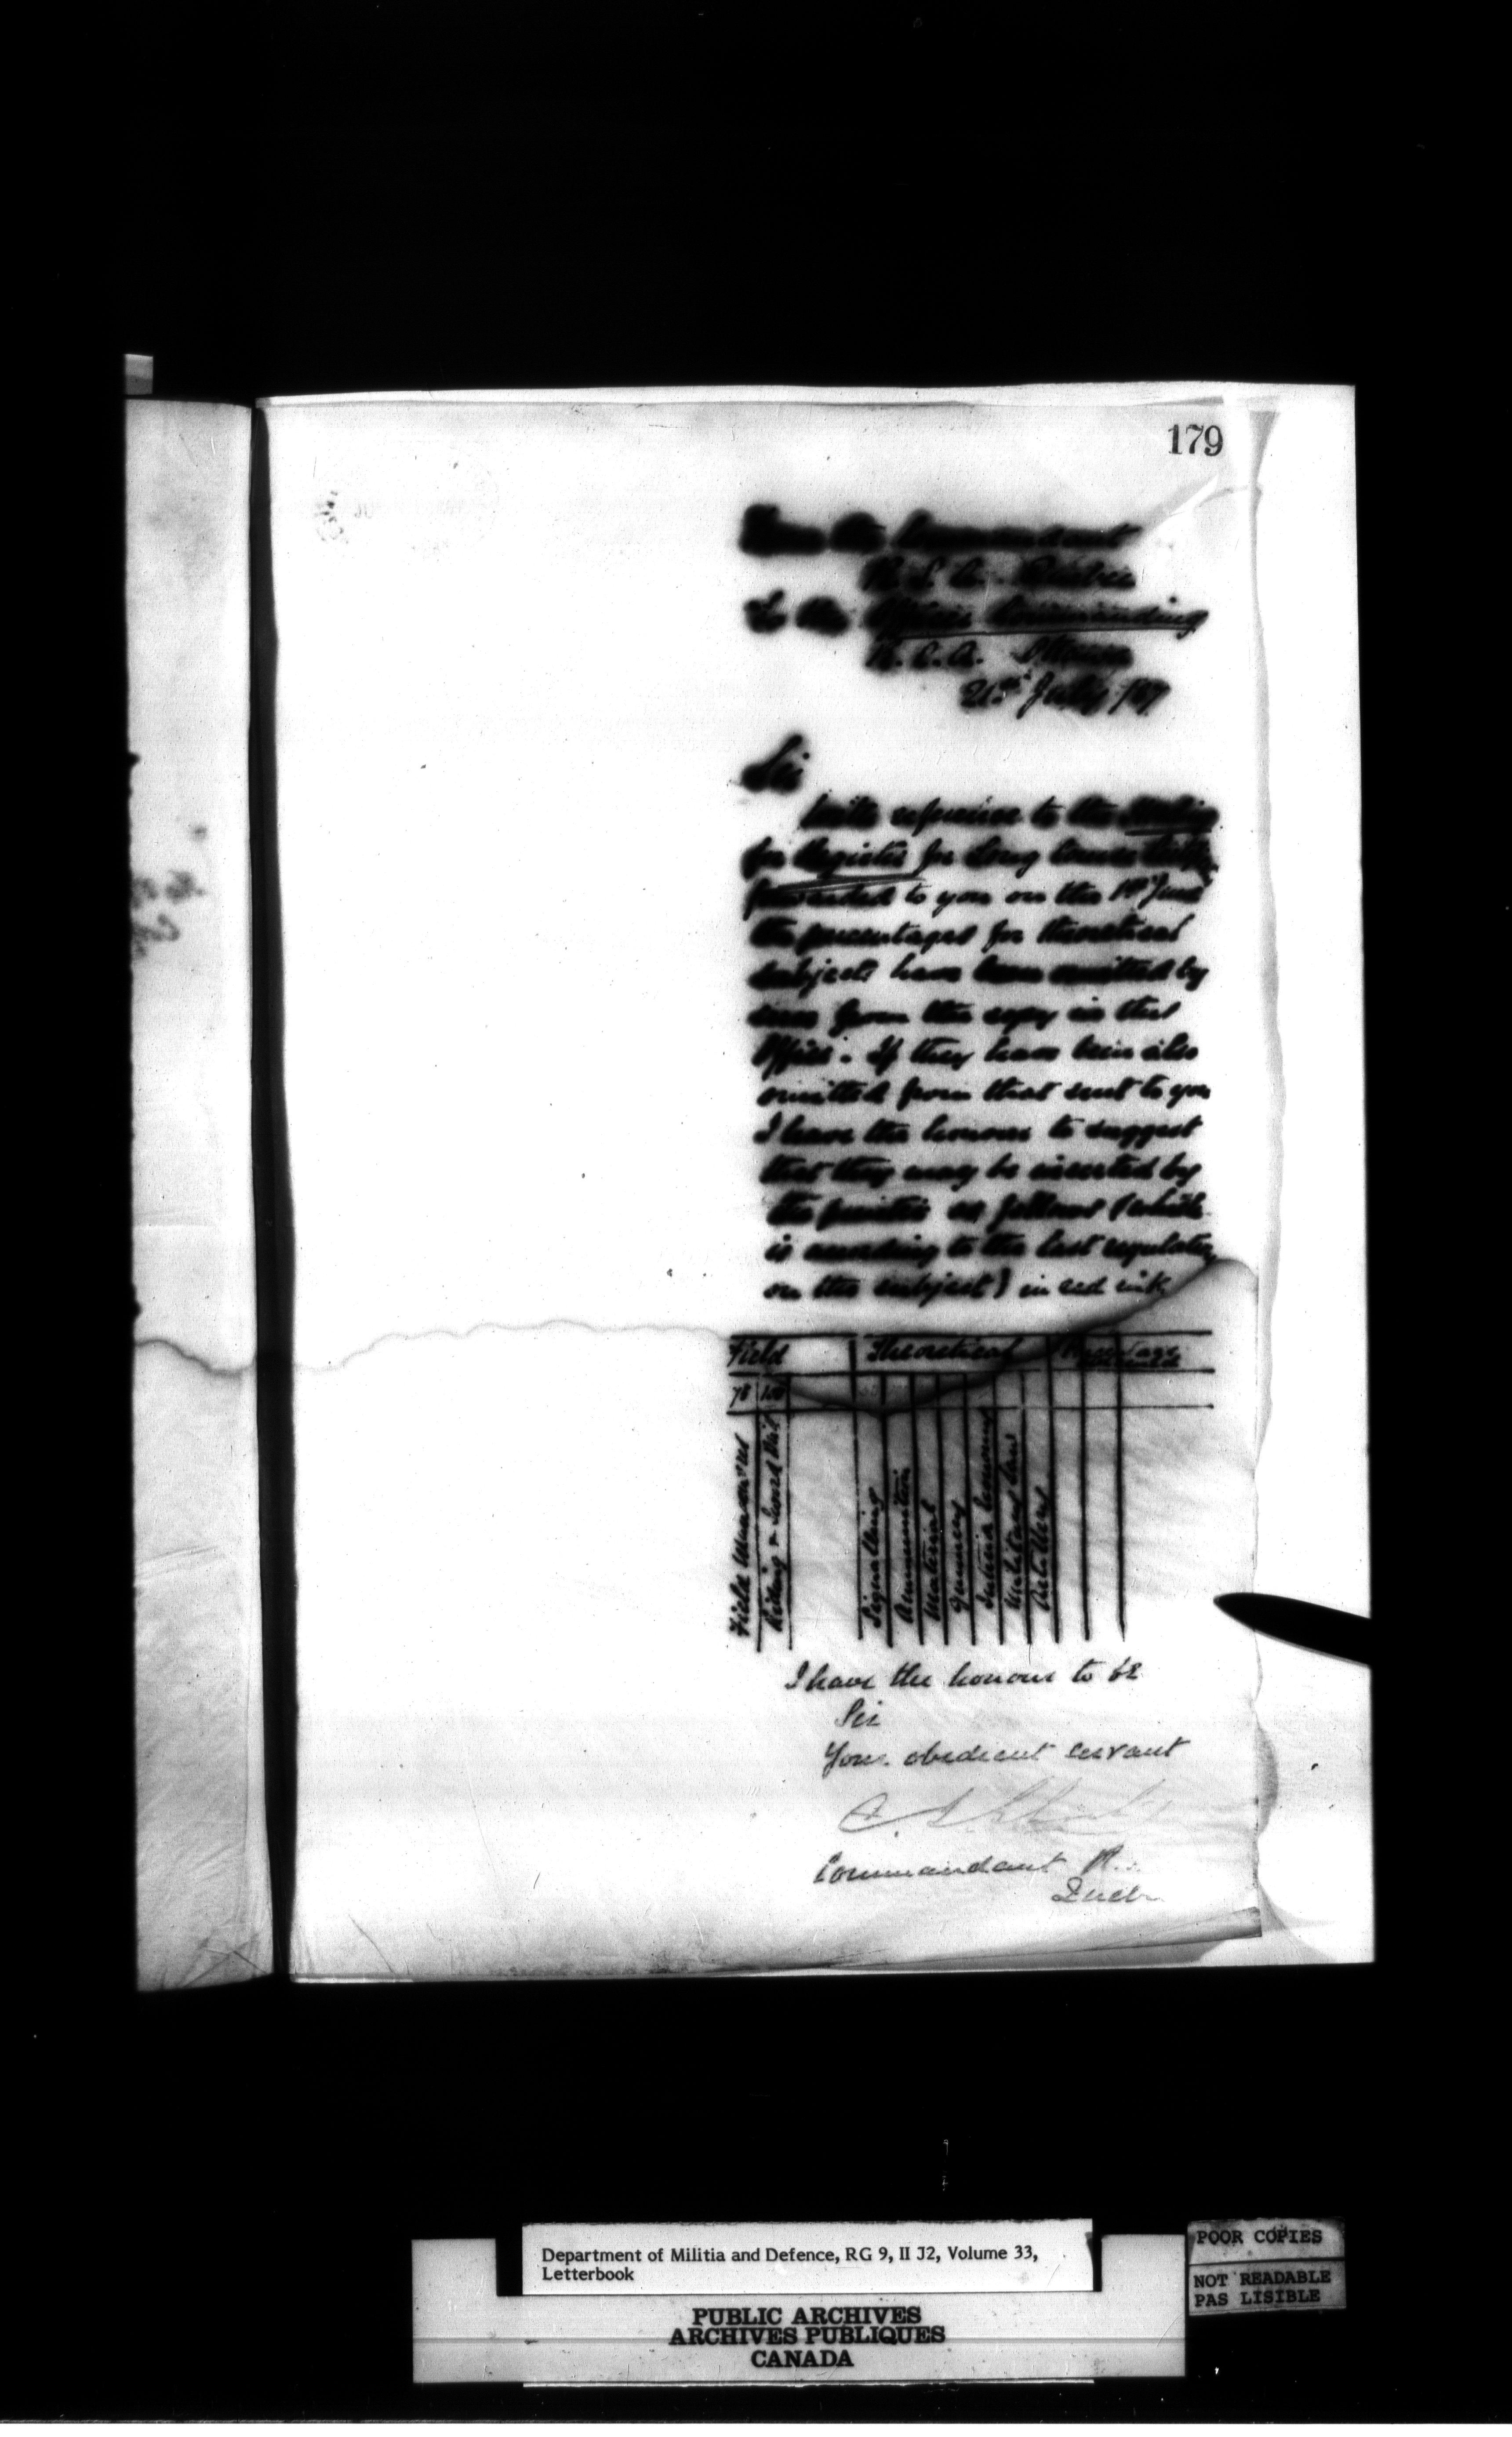 179
From the Commandant
R. S. A. Quebec
To the Officer Commanding
R. C. A. Ottawa
21st July /87
Sir
With reference to the
for Register for Long Course
forwarded to you on the 1st June
the percentages for theoretical
subjects have been omitted by
from the copy in this
Office. If they have been also
omitted from that sent to you
I have the honour to suggest
that they may be inserted by
the printer as follows (which
is according to the last
on the subject) in red ink
Field Theoretical
78 100
Field Manoeuvres
Riding &
Signalling
Ammunition
Material
Gunnery
Interior Economy
Military Law
Artillery
I have the honour to be
Sir
Your obedient servant
Commandant R.
Quebe
Department of Militia and Defence, RG 9, II J2, Volume 33,
Letterbook
PUBLIC ARCHIVES
ARCHIVES PUBLIQUES
CANADA
POOR COPIES
NOT READABLE
PAS LISIBLE